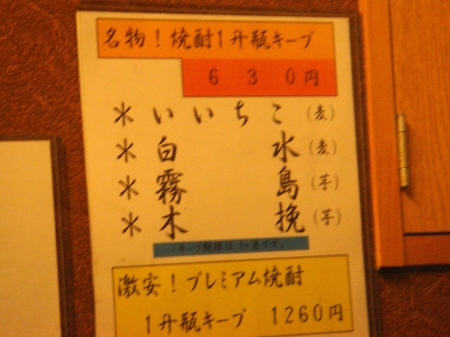 名物！焼酎1升瓶キープ
６３０円
＊いいちこ(麦)
＊白水(麦)
＊霧島(芋)
＊木挽(芋)
キープ期限は1ヶ月です。
激安！プレミアム焼酎
1升瓶キープ 1260円